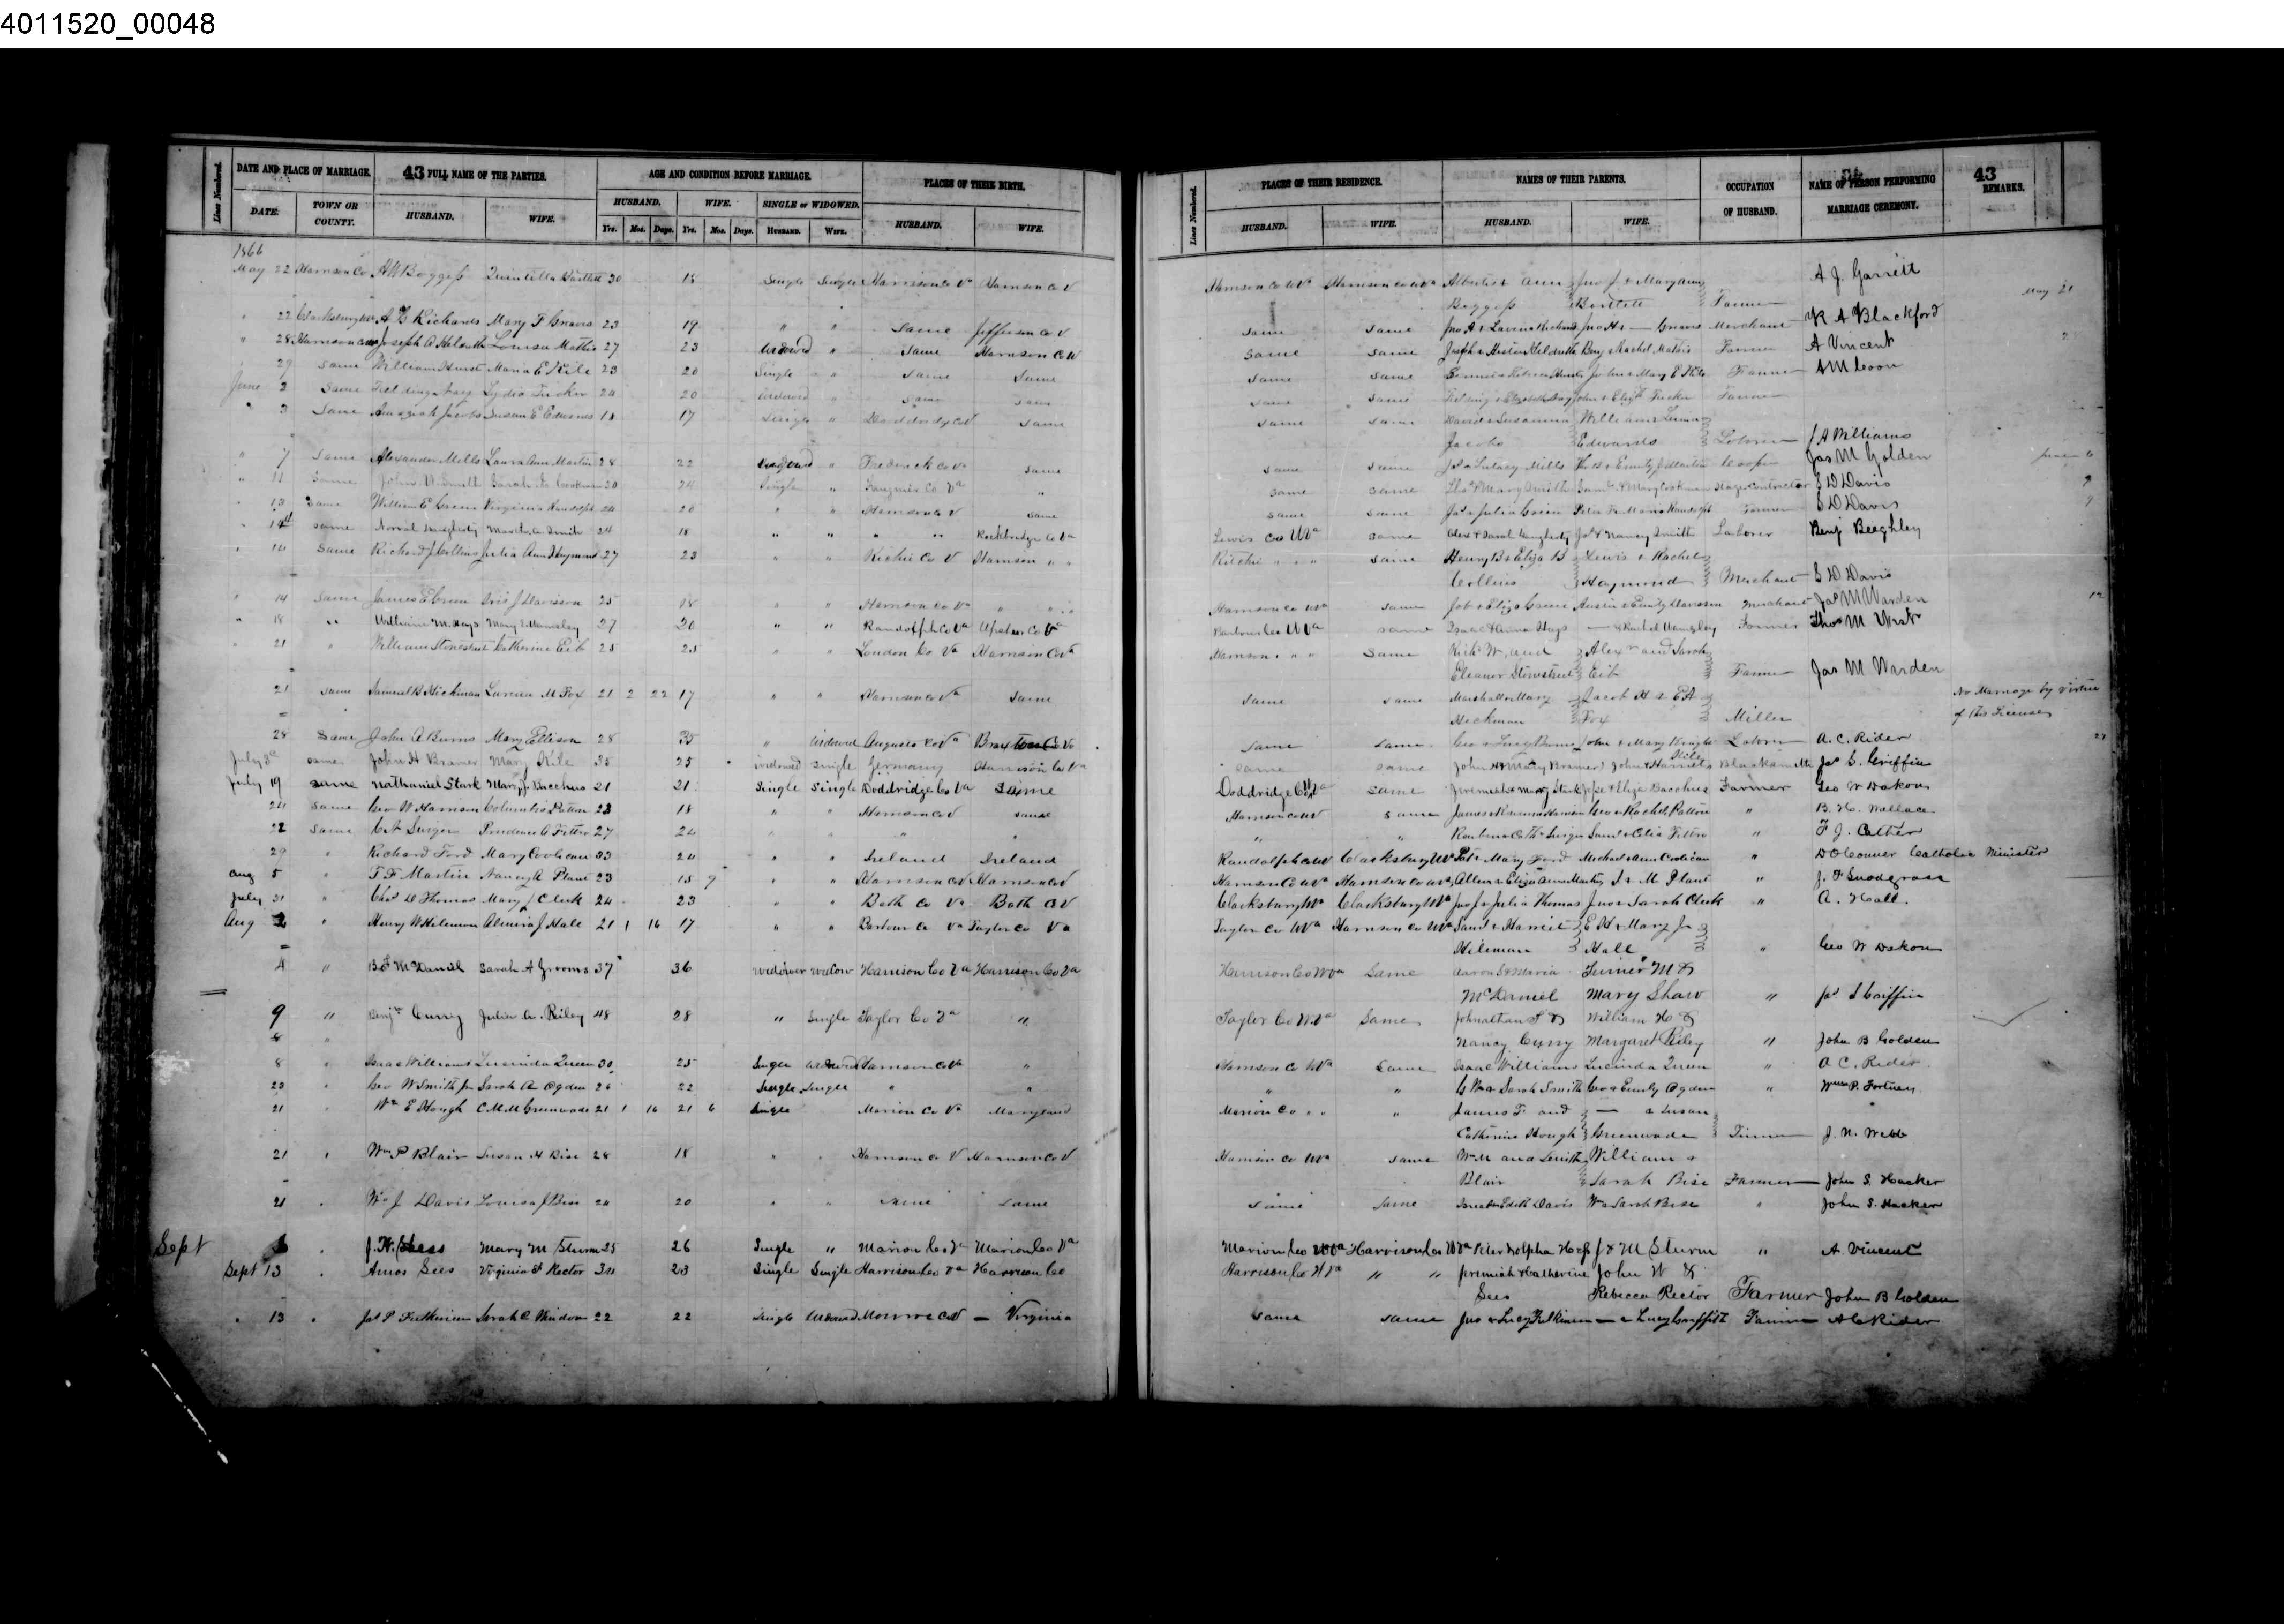 4011520_00048
43 43
Lines Numbered. DATE AND PLACE OF MARRIAGE. FULL NAME OF THE PARTIES. AGE AND CONDITION BEFORE MARRIAGE. PLACES OF THEIR BIRTH.
DATE. TOWN OR COUNTY. HUSBAND. WIFE. HUSBAND. WIFE. SINGLE or WIDOWED. HUSBAND. WIFE.
Yrs. Mos. Days. Yrs. Mos. Days. HUSBAND. WIFE.
Lines Numbered. PLACES OF THEIR RESIDENCE. NAMES OF THEIR PARENTS. OCCUPATION OF HUSBAND. NAME OF PERSON PERFORMING MARRIAGE CEREMONY. REMARKS.
HUSBAND. WIFE. HUSBAND. WIFE.
1866
May 22 Harrison Co A W Boggess Quintilla Bartlett 30 18 Single Single Harrison Co Va Harrison Co V Harrison Co WVa Harrison Co WVa Albertis & Ann Jno J & Mary Ann A J Garrett
Boggess Bartlett Farmer May 21
" 22 A G Richards Mary F 23 19 " " Same Jefferson Co V same same Merchant R A Blackford
" 28 Joseph Louisa Mathis 27 23 Widowd " Same Harrison Co same same Farmer A Vincent
29 Same William Hurst Maria E Kile 23 20 Single " Same Same same same Farmer A M Coon
June 2 Same Lydia Tucker 20 widowed " same same same same Farmer
" 3 Same Jacobs Susan E Edwards 18 17 Single " Doddridge Co V same same same David & Susanna William &
Jacobs Edwards Laborer J A Williams
" 7 Same Alexander Mills Laura Ann Martin 28 22 Widowed " Frederick Co Va same same same Cooper Jas M Golden
" 11 Same John W Smith Sarah E 20 24 Single " Fauquier Co Va " same same Stage Contractor S D Davis 9
" 13 Same William E Green Virginia Randolph 24 20 " " Harrison Co V same same same Jas & Julia Green Farmer S D Davis 9
" 14th same Norval Daugherty Martha A Smith 24 18 " " " " Rockbridge Co Va Lewis Co WVa same Alex & Sarah Daugherty Jos & Nancy Smith Laborer Benj Beeghley
" 14 Same Richard J Collins Julia Ann Haymond 27 23 " " Richie Co V Harrison " " Ritchie " " " same Henry B & Eliza B Lewis & Rachel
Collins Haymond Merchant S D Davis
" 14 Same James E Green Iris J Davisson 25 18 " " Harrison Co Va " " " Harrison Co WVa same Job & Eliza Green Austin & Emily Davisson Merchant Jas M Warden
" 18 " William M Hays Mary E Wamsley 27 20 " " Randolph Co Va Upshur Co Va Barbour Co WVa same Isaac & Anna Hays — & Rachel Wamsley Farmer Thos M West
" 21 " William Stonestreet Catherine Eib 25 25 " " Loudon Co Va Harrison Co Va Harrison " " " Same Richd W and Alexr and Sarah
Eleanor Stonestreet Eib Farmer Jas M Warden
21 same Samuel B Hickman M Fox 21 2 22 17 " " Harrison Co Va Same same same Marshall & Mary Jacob H & E A No Marriage by virtue
Hickman Fox Miller of this License
28 Same John A Burns Mary Ellison 28 35 " Widowed Augusta Co Va Braxton Co Va same same Geo & Lucy Burns John & Mary Laborer A. C. Rider
July 3d same John H Bramer Mary Kile 35 25 widowed single Germany Harrison Co Va same same John H & Mary Bramer John & Harriet Kile Blacksmith Jas S. Griffin
July 19 same Nathaniel Stark Mary J. Bacchus 21 21 Single Single Doddridge Co Va Same Doddridge Co WVa same Jeremiah & Mary Stark Jesse & Eliza Bacchus Farmer Geo W Dakon
20 same Geo W Harrison Columbia Patton 23 18 " " Harrison Co V same Harrison Co WV same Geo & Rachel Patton " B. H. Wallace
22 same C A Swiger Prudence C Fittro 27 24 " " " " " " Reuben & Cath Swiger Saml & Celia Fittro " F J. Cather
29 " Richard Ford Mary 33 20 " " Ireland Ireland Randolph Co WV Clarksburg WVa Pat & Mary Ford Michael & Ann " D O Conner Catholic Minister
Aug 5 " T F Martin Nancy A Plant 23 15 9 " " Harrison Co V Harrison Co V Harrison Co WVa Harrison Co WVa Allen & Eliza Ann Martin J & M Plant " J. F Snodgrass
July 31 " Chas D Thomas Mary J Clerk 24 23 " " Bath Co Va Bath Co V Clarksburg WVa Clarksburg WVa Jno J & Julia Thomas Jno & Sarah Clerk " A. Hall
Aug 2 " Henry W Hileman Almira J Hall 21 1 16 17 " " Barbour Co Va Taylor Co Va Taylor Co WVa Harrison Co WVa Saml & Harriet E H & Mary J
Hileman Hall " Geo W Dakon
4 " B F McDaniel Sarah A Grooms 37 36 widower widow Harrison Co Va Harrison Co Va Harrison Co WVa Same Aaron S & Maria Turner M &
McDaniel Mary Shaw " Jas S Griffin
9 " Benjn Curry Julia A. Riley 48 28 " Single Taylor Co Va " Taylor Co W.Va Same Johnathan S & William H &
Nancy Curry Margaret Riley " John B Golden
8 "
8 " Isaac Williams Lucinda Queen 30 25 Single Widowed Harrison Co Va " Harrison Co WVa Same Isaac Williams Lucinda Queen " A C. Rider
23 " Geo W Smith Jr Sarah A Ogden 26 22 Single Single " " " " G W & Sarah Smith Geo & Emily Ogden " Wm P. Fortney
21 " Wm E Hough C M M Greenwade 21 1 16 21 6 Single Marion Co Va Maryland Marion Co " " " James T. and — & Susan
Catherine Hough Greenwade J. N. Webb
21 " Wm P Blair Susan H Bise 28 18 " " Harrison Co V Harrison Co V Harrison Co WVa same William &
Blair Sarah Bise Farmer John S. Hacker
21 " Wm J Davis Louisa J Bise 24 20 " " same same same same Wm & Sarah Bise " John S. Hacker
Sept " J. H. Hess Mary M Sturm 25 26 Single " Marion Co Va Marion Co Va Marion Co WVa Harrison Co WVa Peter & Hess J & M Sturm " A. Vincent
Sept 13 " Amos Sees Virginia F Rector 34 23 Single Single Harrison Co Va Harrison Co Harrison Co WVa " " Jeremiah & Catherine John W &
Sees Rebecca Rector Farmer John B Golden
" 13 " Jas P Sarah C 22 22 Single Widowed Monroe Co V — Virginia same same Jno & Lucy — & Lucy Griffith Farmer A C Rider